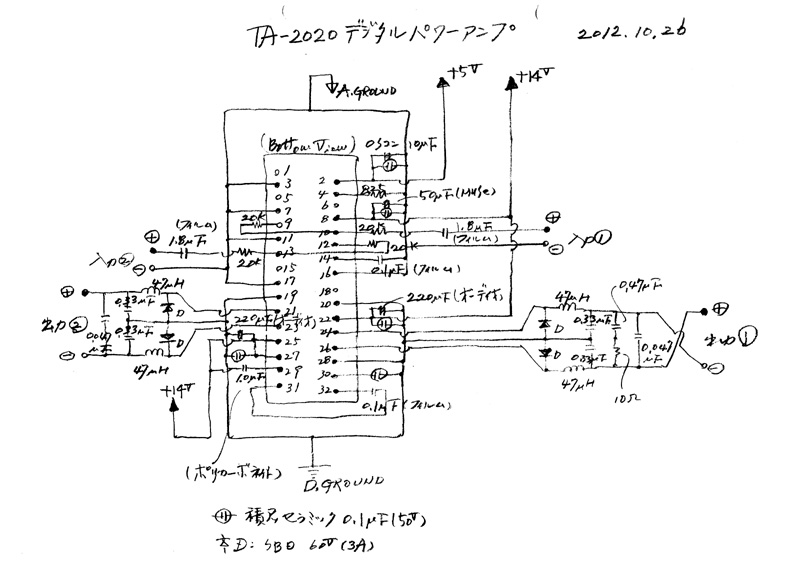 TA-2020 デジタルパワーアンプ 2012.10.26
+5V
+14V
A.GROUND
(Bottom View)
OSコン 10μF
1
2
3
4
5
6
7
8
9
10
11
12
13
14
15
16
17
18
19
20
21
22
23
24
25
26
27
28
29
30
31
32
50μF(MUSE)
20K
20K
20K
(フィルム)
1.8μF
1.8μF
(フィルム)
入力①
入力②
0.1μF(フィルム)
220μF(オーディオ)
220μF(オーディオ)
47μH
0.33μF
0.33μF
47μH
D
D
出力②
1.0μF
+14V
47μH
0.33μF
0.47μF
D
D
0.33μF
47μH
10Ω
0.047μF
出力①
0.1μF(フィルム)
(ポリカーボネイト)
D.GROUND
積層セラミック 0.1μF(50V)
D: SBD 60V(3A)